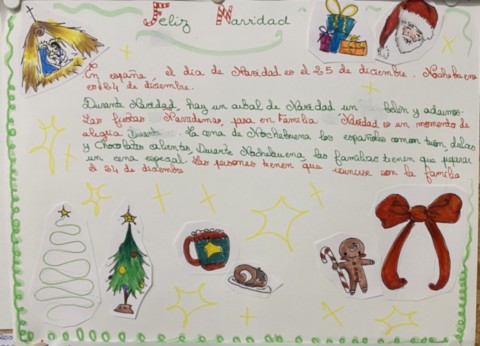 Feliz Navidad
En españa, el dia de Navidad es el 25 de diciembre. Nochebuena
es el 24 de diciembre.
Durante Navidad, hay un arbol de Navidad un belén y adornos.
Las fiestas Navideñas, pasa en familia Navidad es un momento de
alegria Durante La cena de Nochebuena los españoles comen
y Chocolates calientes. Durante Nochebuena las familias tienen que preparar
un cena especial. Las persones tienen que reunirse con la familia
el 24 de diciembre